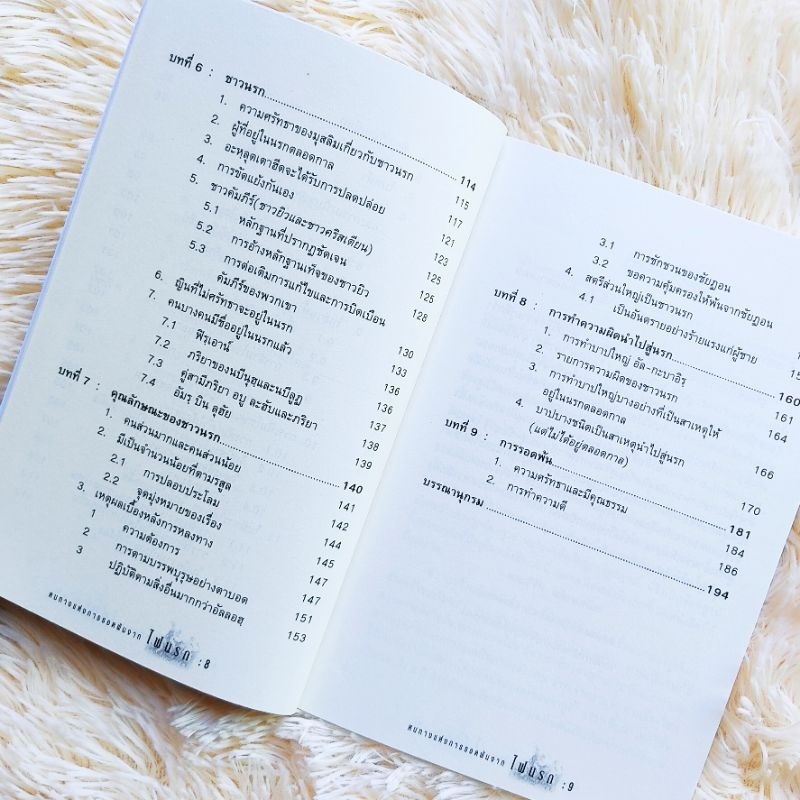 บทที่ 6 : ชาวนรก..........................................114
1. ความศรัทธาของมุสลิมเกี่ยวกับชาวนรก 115
2. ผู้ที่อยู่ในนรกตลอดกาล 117
3. อะหฺลุตเตาฮีดจะได้รับการปลดปล่อย 121
4. การขัดแย้งกันเอง 123
5. ชาวคัมภีร์(ชาวยิวและชาวคริสเตียน) 125
5.1 หลักฐานที่ปรากฏชัดเจน 125
5.2 การอ้างหลักฐานเท็จของชาวยิว 128
5.3 การต่อเติมการแก้ไขและการบิดเบือน
คัมภีร์ของพวกเขา 130
6. ญินที่ไม่ศรัทธาจะอยู่ในนรก 133
7. คนบางคนมีชื่ออยู่ในนรกแล้ว 136
7.1 ฟิรฺเอาน์ 136
7.2 ภริยาของนบีนูฮฺและนบีลูฏ 137
7.3 คู่สามีภริยา อบู ละฮับและภริยา 138
7.4 อัมฺรฺ บิน ลุฮัย 139
บทที่ 7 : คุณลักษณะของชาวนรก..............................140
1. คนส่วนมากและคนส่วนน้อย 141
2. มีเป็นจำนวนน้อยที่ตามรสูล 142
2.1 การปลอบประโลม 144
2.2 จุดมุ่งหมายของเรื่อง 145
3. เหตุผลเบื้องหลังการหลงทาง 147
1 ความต้องการ 147
2 การตามบรรพบุรุษอย่างตาบอด 151
3 ปฏิบัติตามสิ่งอื่นมากกว่าอัลลอฮฺ 153
หนทางแห่งการรอดพ้นจาก ไฟนรก : 8
3.1 การชักชวนของชัยฏอน
3.2 ขอความคุ้มครองให้พ้นจากชัยฏอน
4. สตรีส่วนใหญ่เป็นชาวนรก
4.1 เป็นอันตรายอย่างร้ายแรงแก่ผู้ชาย
บทที่ 8 : การทำความผิดนำไปสู่นรก..........................160
1. การทำบาปใหญ่ อัล-กะบาอิรฺ 161
2. รายการความผิดของชาวนรก 164
3. การทำบาปใหญ่บางอย่างที่เป็นสาเหตุให้
อยู่ในนรกตลอดกาล 166
4. บาปบางชนิดเป็นสาเหตุนำไปสู่นรก
(แต่ไม่ได้อยู่ตลอดกาล) 170
บทที่ 9 : การรอดพ้น........................................181
1. ความศรัทธาและมีคุณธรรม 184
2. การทำความดี 186
บรรณานุกรม..................................................194
หนทางแห่งการรอดพ้นจาก ไฟนรก : 9